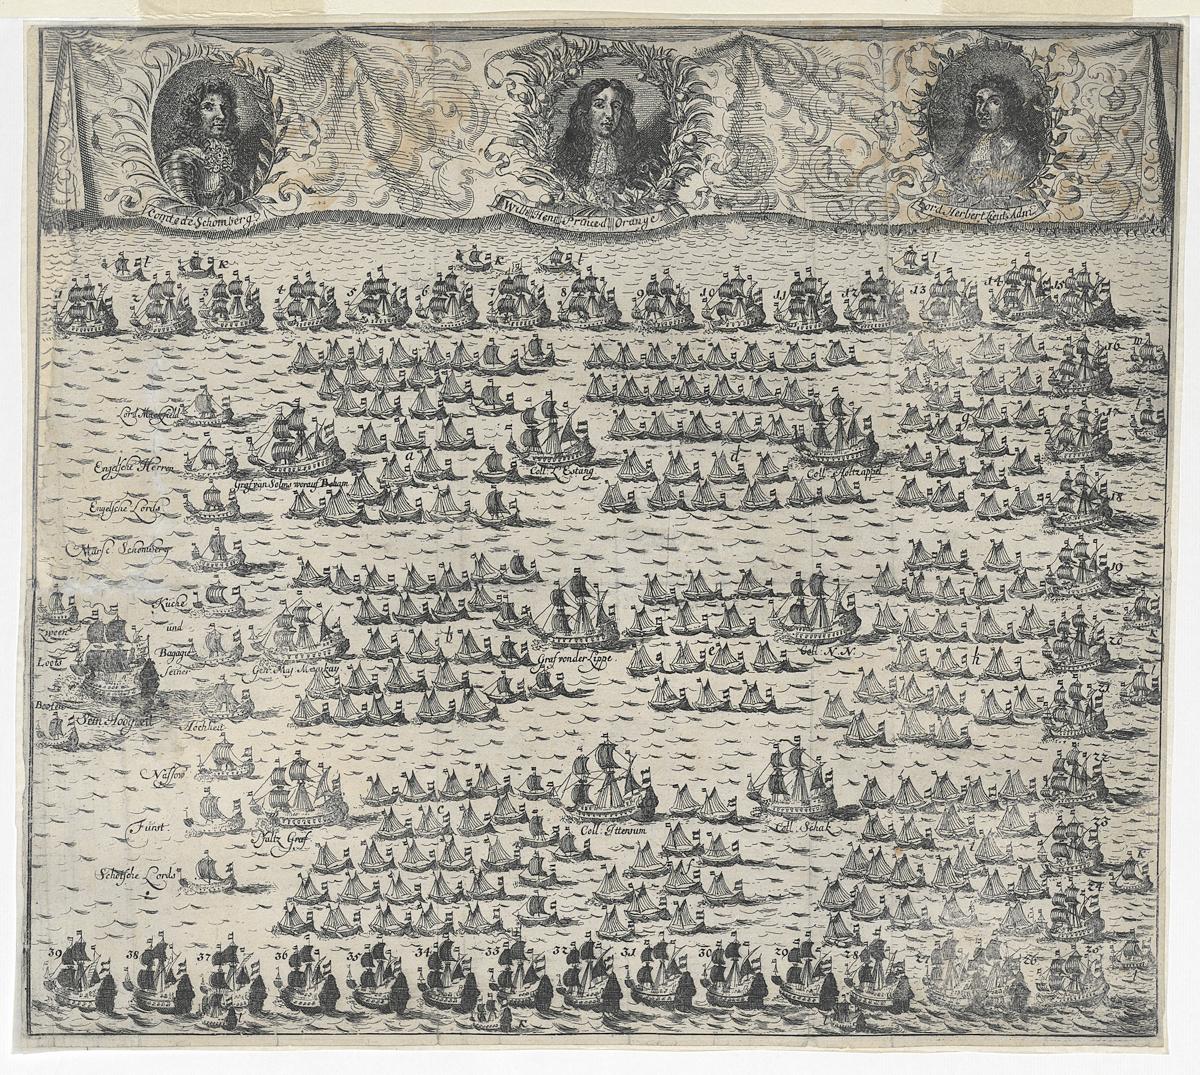 Conte de Schomberg.
Wilh. Henr. Prince d'Orange
Lord Herbert Lieut. Adm.
l k k l l
1 2 3 4 5 6 8 9 10 11 12 13 14 15
16 m
17
18
19
20 k
21
22
23
24 k
25
Engelsche Herren
Engelsche Lords
Marsc. Schomberg
Küche
und
Bagagie
seiner
Hochheit
Zween
Loots
Booten
Sein Hoogheit
Nassow
Fürst.
Schotsche Lords
i
Graf van Solms worauf Beham
Coll. L'Estang
Coll. Holtzappel
a d g
Gen. Maj. Mackay
Graf von der Lippe
Coll. N. N.
b e h
Paltz Graf
Coll. Ittersum
Coll. Schak
c f i
39 38 37 36 35 34 33 32 31 30 29 28 27 26
l k l